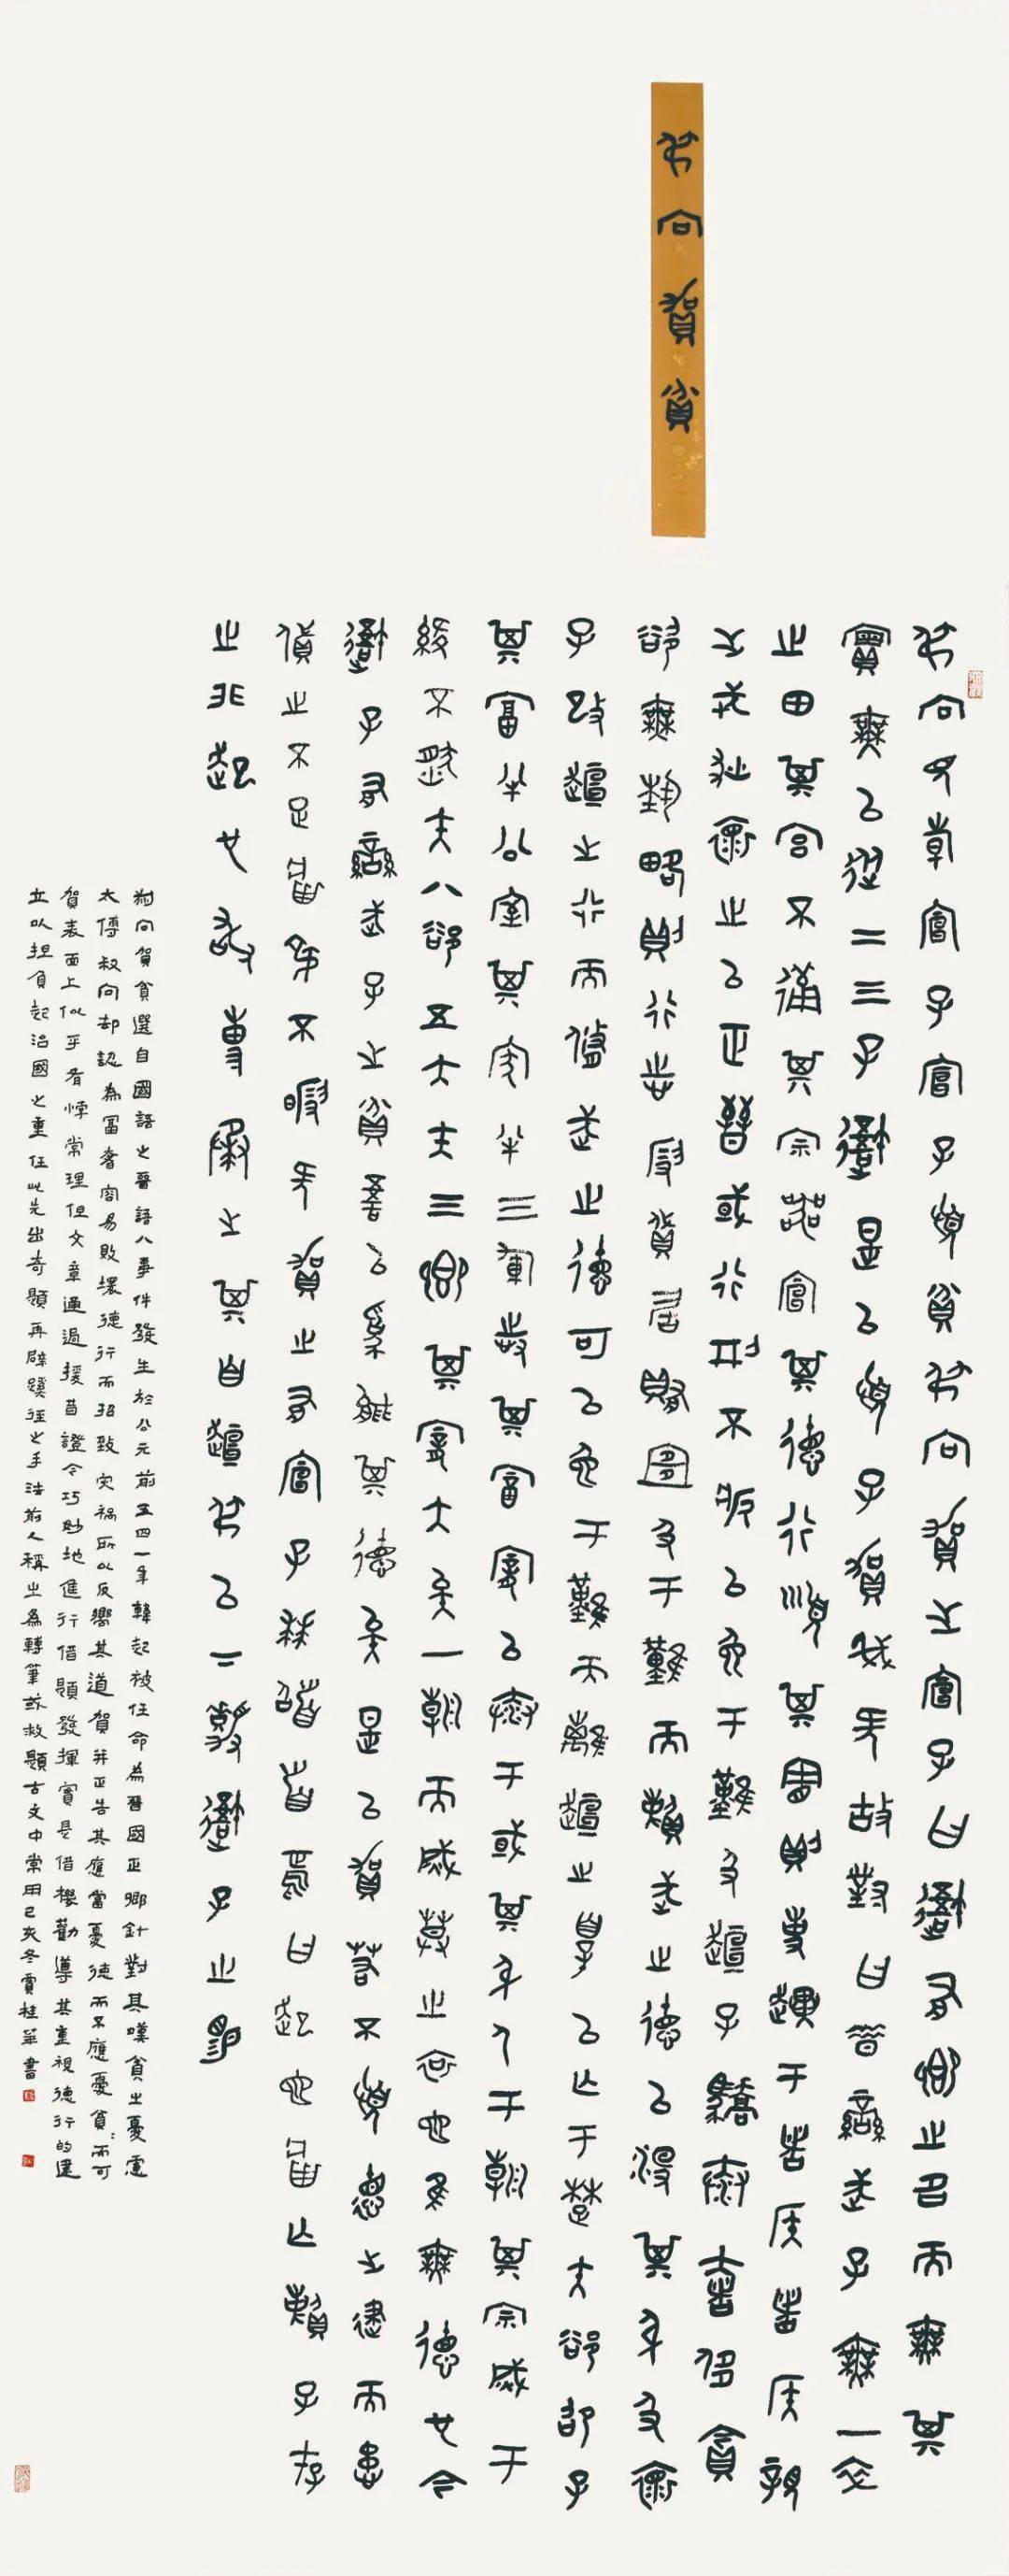 叔向賀貧
叔向見韓宣子宣子憂貧叔向賀之宣子曰吾有卿之名而無其
實無以從二三子吾是以憂子賀我何故對曰昔欒武子無一卒
之田其宮不備其宗器宣其德行順其憲則使越于諸侯諸侯親
之戎狄懷之以正晉國行刑不疚以免于難及桓子驕泰奢侈貪
欲無藝略則行志假貸居賄宜及于難而賴武之德以沒其身及懷
子改桓之行而修武之德可以免于難而離桓之罪以亡于楚夫郤昭子
其富半公室其家半三軍恃其富寵以泰于國其身尸于朝其宗滅于
絳不然夫八郤五大夫三卿其寵大矣一朝而滅莫之哀也唯無德也今
吾子有欒武子之貧吾以為能其德矣是以賀若不憂德之建而患
貨之不足將弔不暇何賀之有宣子拜稽首焉曰起也將亡賴子存
之非起也敢專承之其自桓叔以下嘉吾子之賜
叔向賀貧選自國語之晉語八事件發生於公元前五四一年韓起被任命為晉國正卿針對其嘆貧之憂慮
太傅叔向却認為富奢容易敗壞德行而招致灾禍所以反嚮其道賀并正告其應當憂德而不應憂貧而可
賀表面上似乎有悖常理但文章通過援昔證今巧妙地進行借題發揮實是借機勸導其重視德行的建
立以担負起治國之重任此先出奇題再辟蹊徑之手法前人稱之為轉筆或救題古文中常用己亥冬賈桂華書